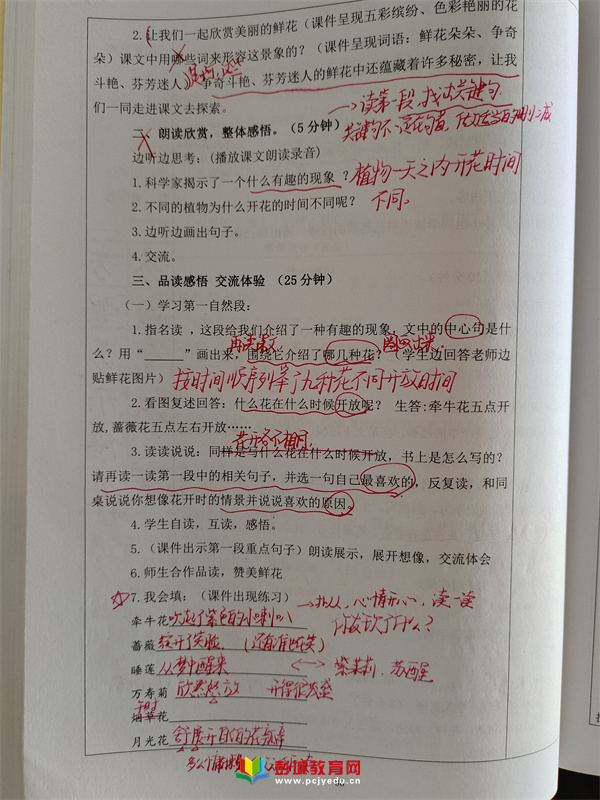 2.让我们一起欣赏美丽的鲜花（课件呈现五彩缤纷、色彩艳丽的花
朵）课文中用哪些词来形容这景象的？（课件呈现词语：鲜花朵朵、争奇
斗艳、芬芳迷人）争奇斗艳、芬芳迷人的鲜花中还蕴藏着许多秘密，让我
们一同走进课文去探索。
→读第一段，找出关键句
二、朗读欣赏，整体感悟。（5 分钟）
边听边思考：（播放课文朗读录音）
1.科学家揭示了一个什么有趣的现象？植物一天之内开花时间
不同。
2.不同的植物为什么开花的时间不同呢？
3.边听边画出句子。
4.交流。
三、品读感悟 交流体验 （25 分钟）
（一）学习第一自然段：
1.指名读，这段给我们介绍了一种有趣的现象，文中的中心句是什
么？用“______”画出来，围绕它介绍了哪几种花？（学生边回答老师边
贴鲜花图片）按时间顺序列举了九种花不同开放时间
2.看图复述回答：什么花在什么时候开放呢？ 生答:牵牛花五点开
放,蔷薇花五点左右开放……
3.读读说说：同样是写什么花在什么时候开放，书上是怎么写的？
请再读一读第一段中的相关句子，并选一句自己最喜欢的，反复读，和同
桌说说你想像花开时的情景并说说喜欢的原因。
4.学生自读，互读，感悟。
5.（课件出示第一段重点句子）朗读展示，展开想像，交流体会
6.师生合作品读，赞美鲜花
7.我会填：（课件出现练习）
牵牛花吹起了紫色的小喇叭
蔷薇绽开了笑脸
睡莲从梦中醒来
万寿菊欣然怒放
烟草花
月光花舒展开自己的花瓣
彭城教育网
www.pcjyedu.cn